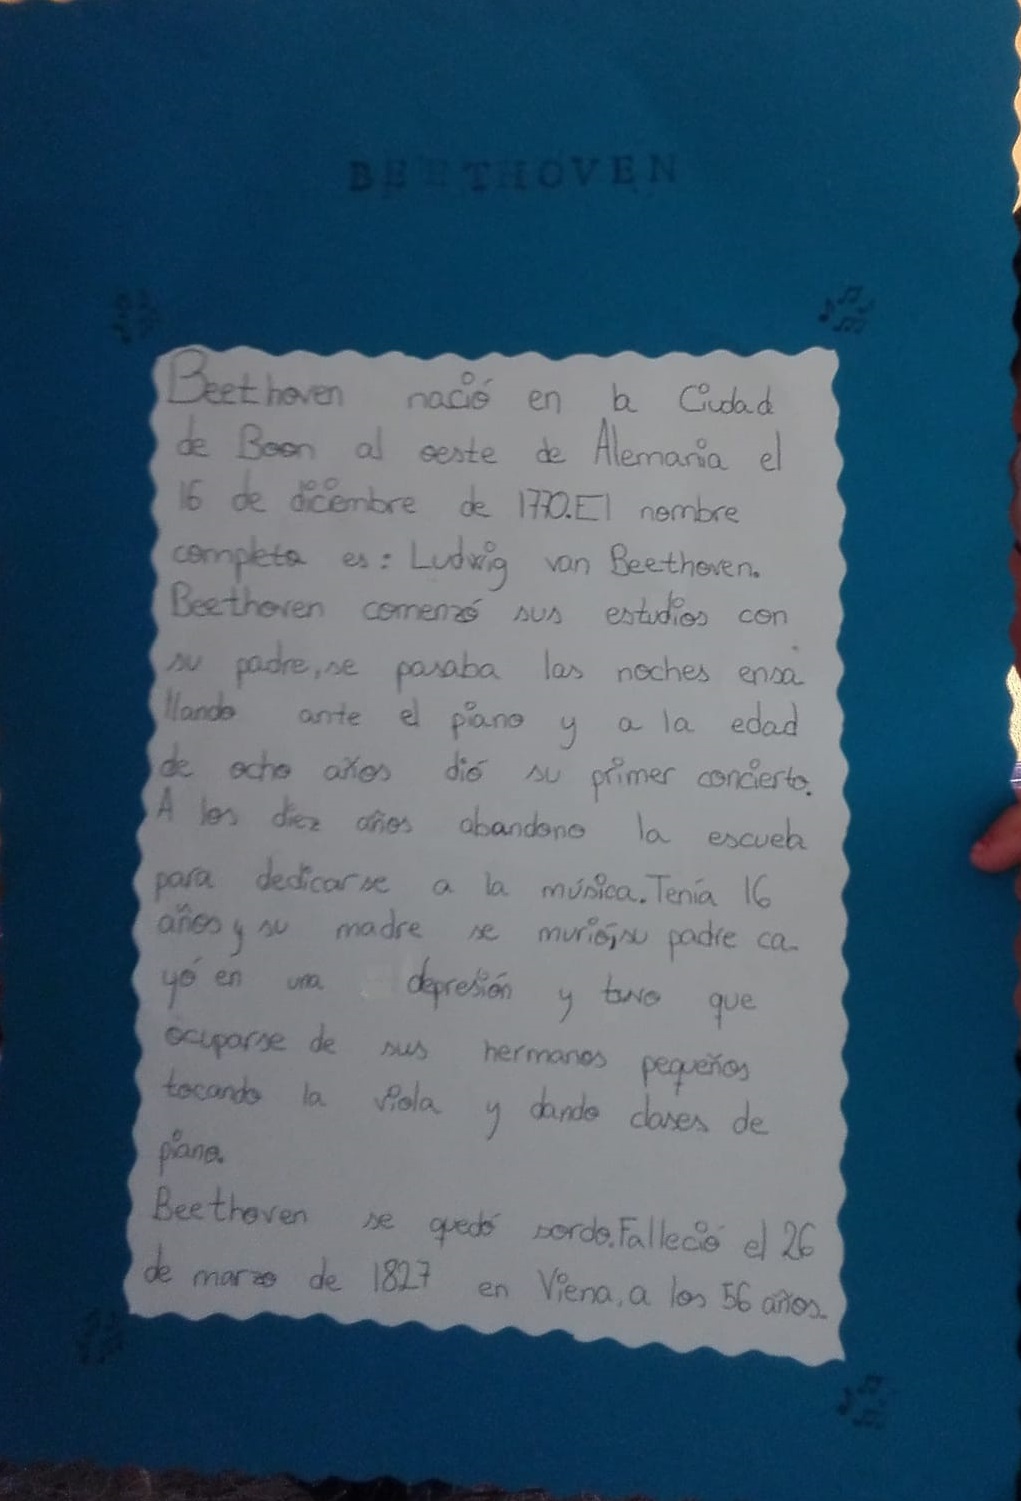 BEETHOVEN
Beethoven nació en la Ciudad
de Boon al oeste de Alemania el
16 de dicembre de 1770.El nombre
completo es: Ludwig van Beethoven.
Beethoven comenzó sus estudios con
su padre, se pasaba las noches ensa
llando ante el piano y a la edad
de ocho años dió su primer concierto.
A los diez años abandono la escuela
para dedicarse a la música. Tenía 16
años y su madre se murió, su padre ca-
yó en una depresión y tuvo que
ocuparse de sus hermanos pequeños
tocando la viola y dando clases de
piano.
Beethoven se quedó sordo. Falleció el 26
de marzo de 1827 en Viena, a los 56 años.